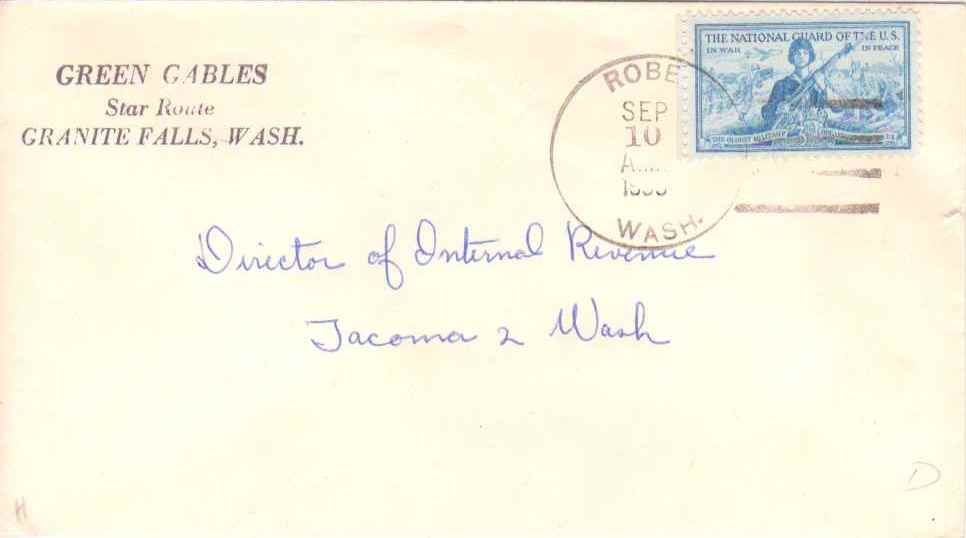 GREEN GABLES
Star Route
GRANITE FALLS, WASH.
THE NATIONAL GUARD OF THE U.S.
IN WAR IN PEACE
THE OLDEST MILITARY
ROBE
SEP
10
WASH.
Director of Internal Revenue
Tacoma 2 Wash
D
H